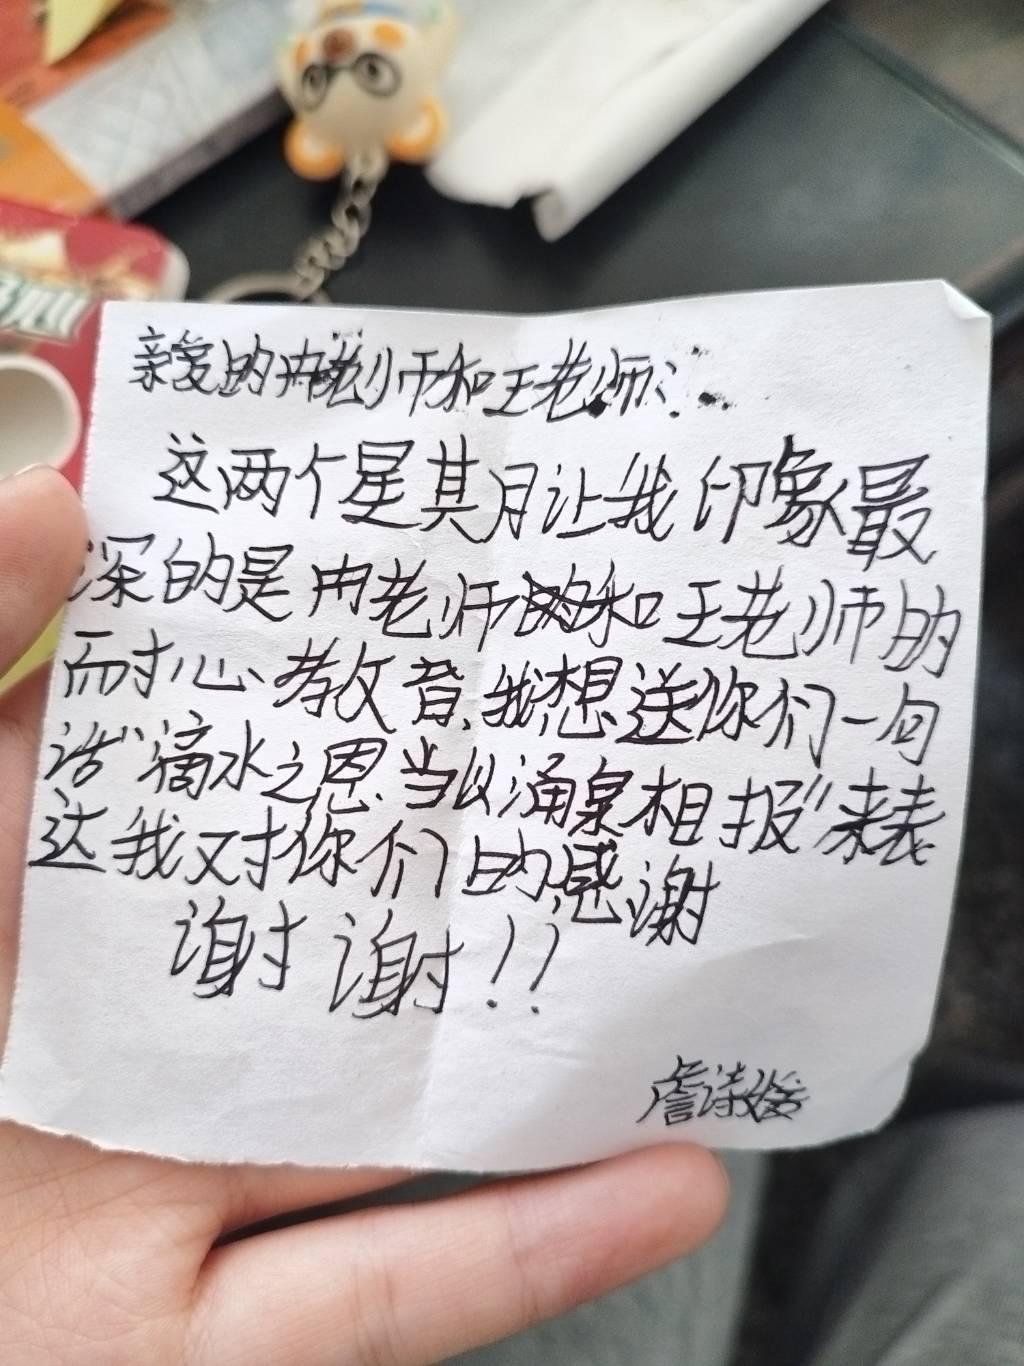 亲爱的冉老师和王老师:
这两个星其月让我印象最
深的是冉老师和王老师的
而寸心教育,我想送你们一句
话"滴水之恩,当以涌泉相报"来表
达我对你们的感谢
谢谢!!
詹诗媛